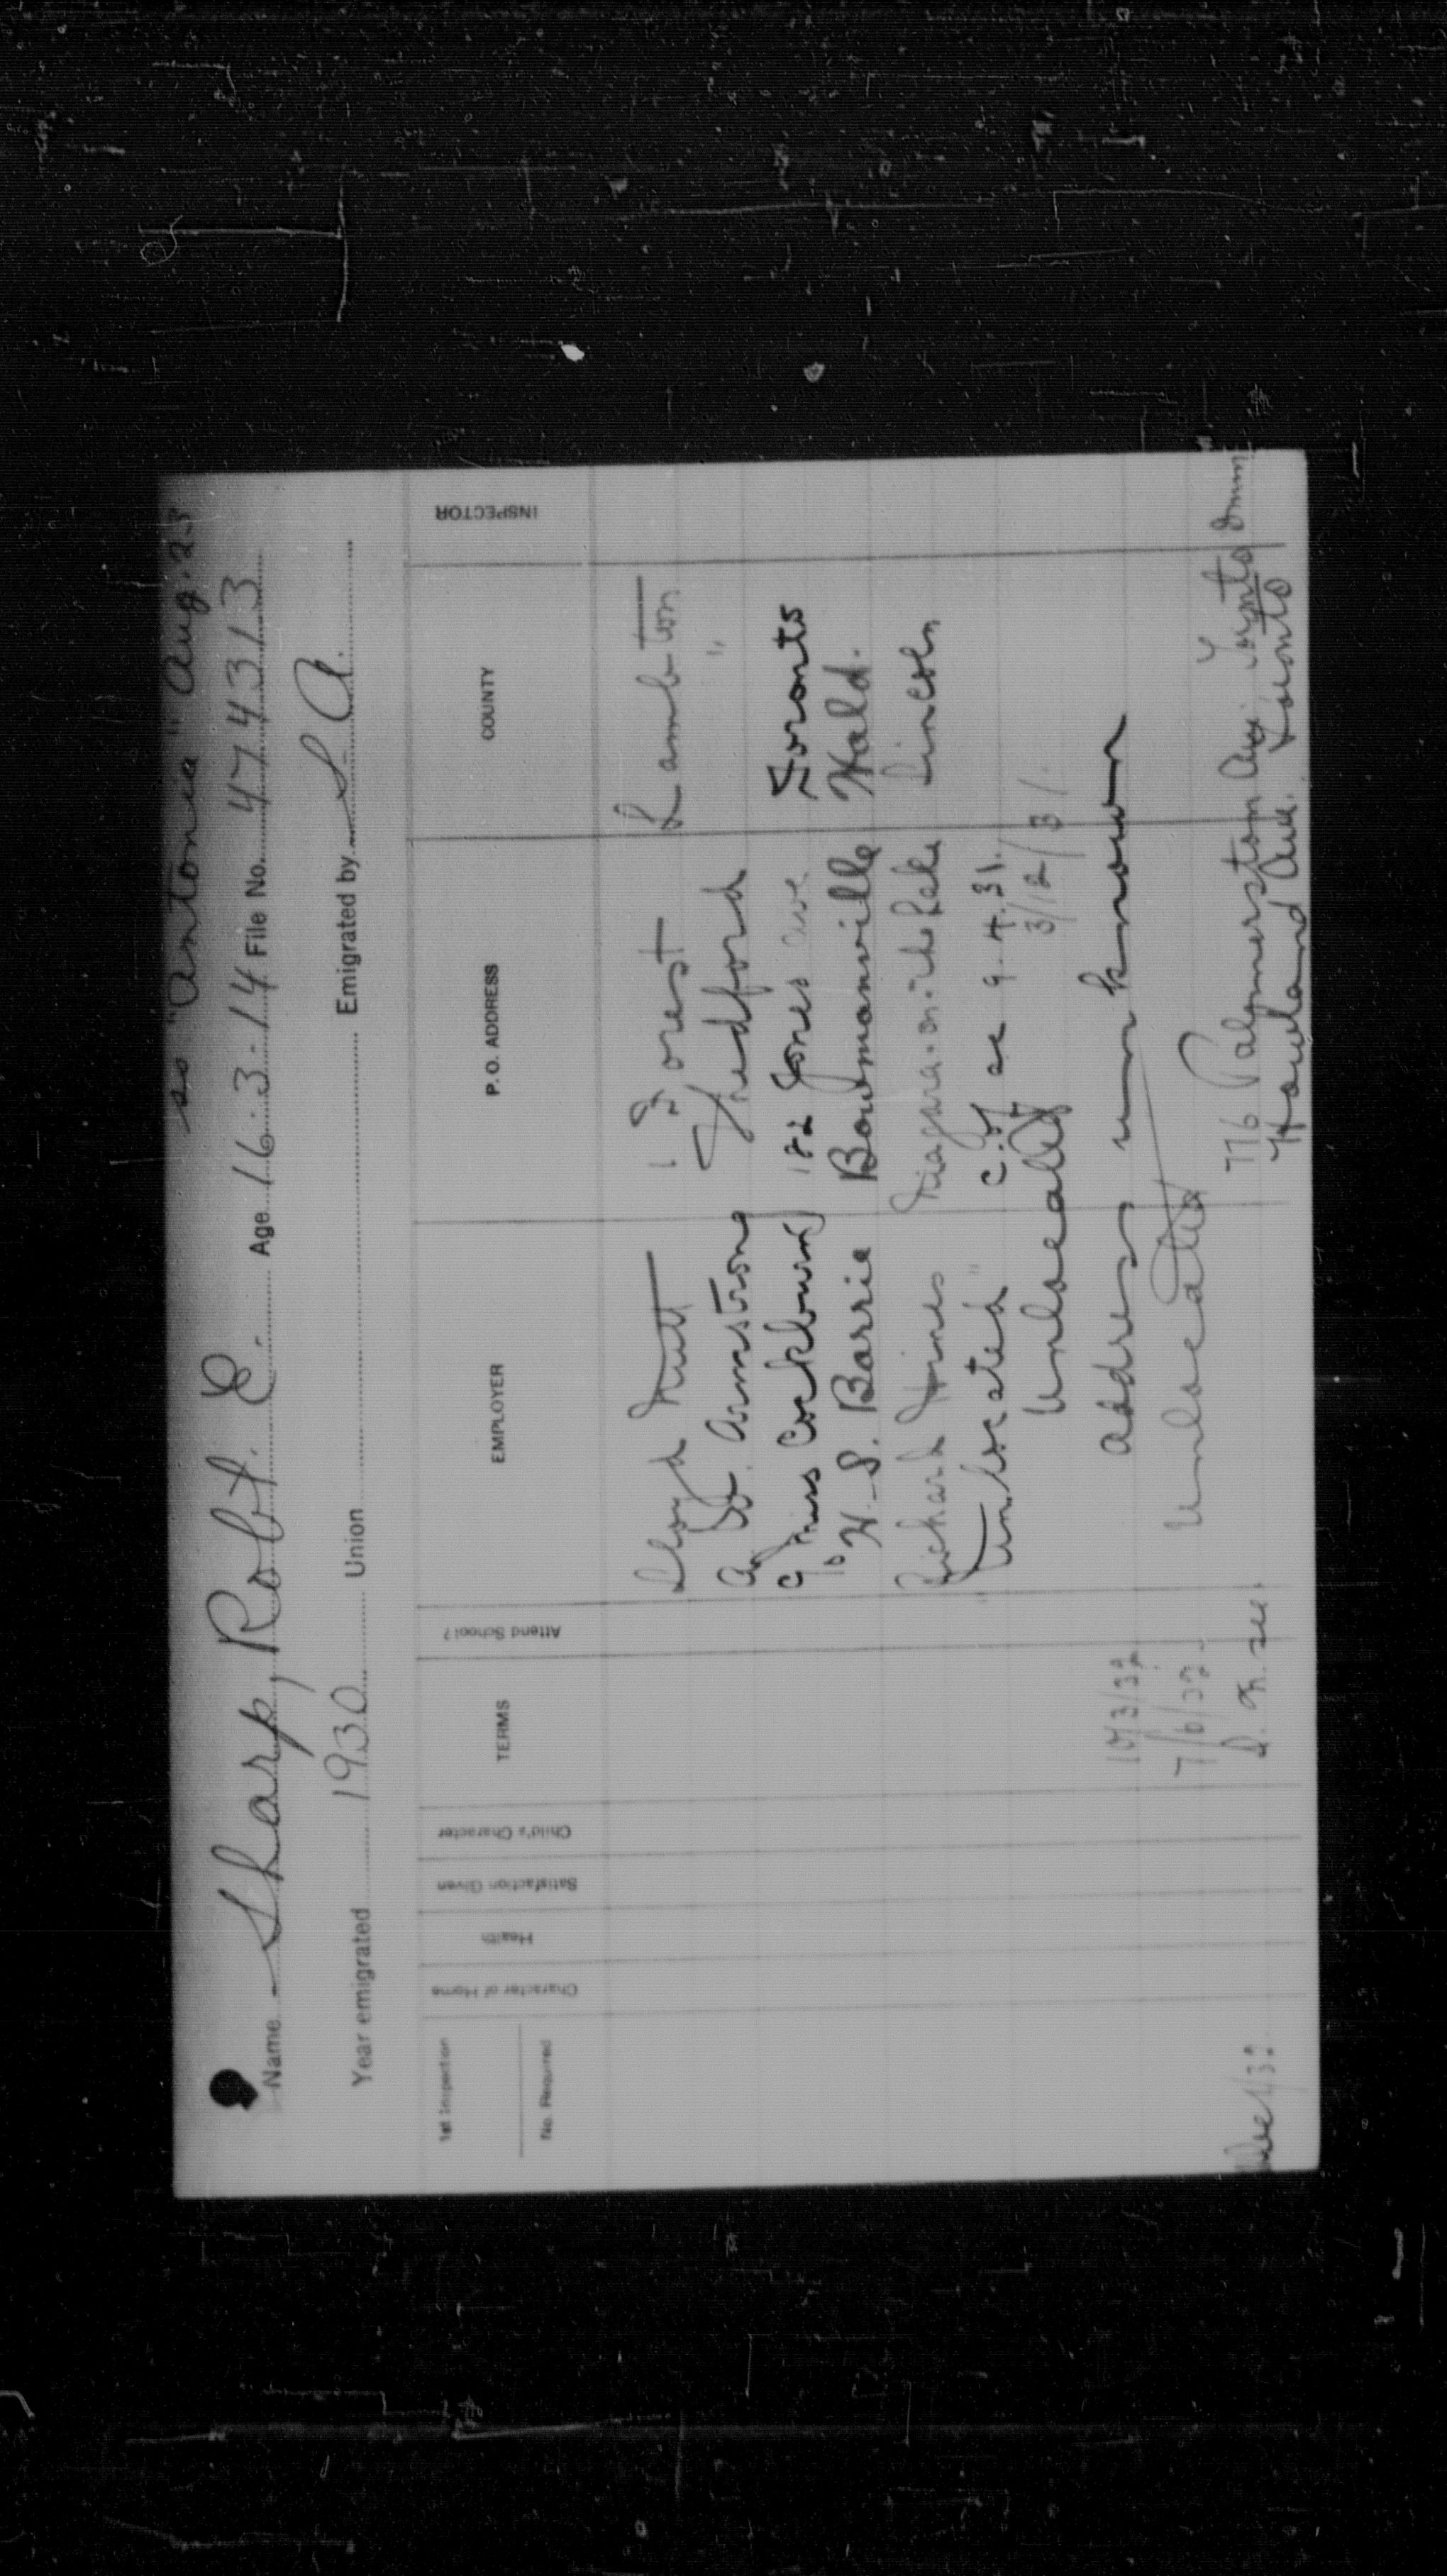 ss "Antonia" Aug. 23
Name Sharp, Robt. E. Age 16-3-14 File No. 474313
Year emigrated 1930 Union Emigrated by S. A.
1st Inspection
No. Required
Character of Home
Health
Satisfaction Given
Child's Character
TERMS
Attend School?
EMPLOYER
P. O. ADDRESS
COUNTY
INSPECTOR
Lloyd Nutt Forest Lambton
W. Armstrong Thedford "
Miss Cockburn 182 Jones ave Toronto
H. S. Barrie Bowmanville Hald.
Richard Hines Niagara-on-the-Lake Lincoln
"Unlocated" c.y ac 9.4.31.
Unlocated 3/12/31.
10/3/32 Address unknown
7/6/32 Unlocated
776 Palmerston Ave. Toronto
Howland Ave. Toronto